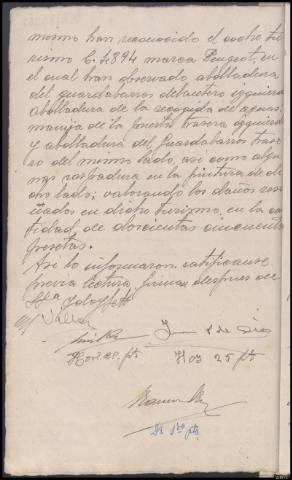 mismo han reconocido el coche tu-
rismo C. 4894 marca Peugeot, en
el cual han observado abolladura
del guardabarros delantero izquierdo
abolladura de la recogida de aguas,
manija de la puerta trasera izquierda
y abolladura del guardabarros trase-
ro del mismo lado, asi como algu-
nas raspadura en la pintura de di-
cho lado; valorando los daños
en dicho turismo, en la can-
tidad de doscientas cincuenta
pesetas.
Asi lo informaron ratificause
previa lectura, firman despues de
Sª
Hon. pts Hon 25 pts
pts